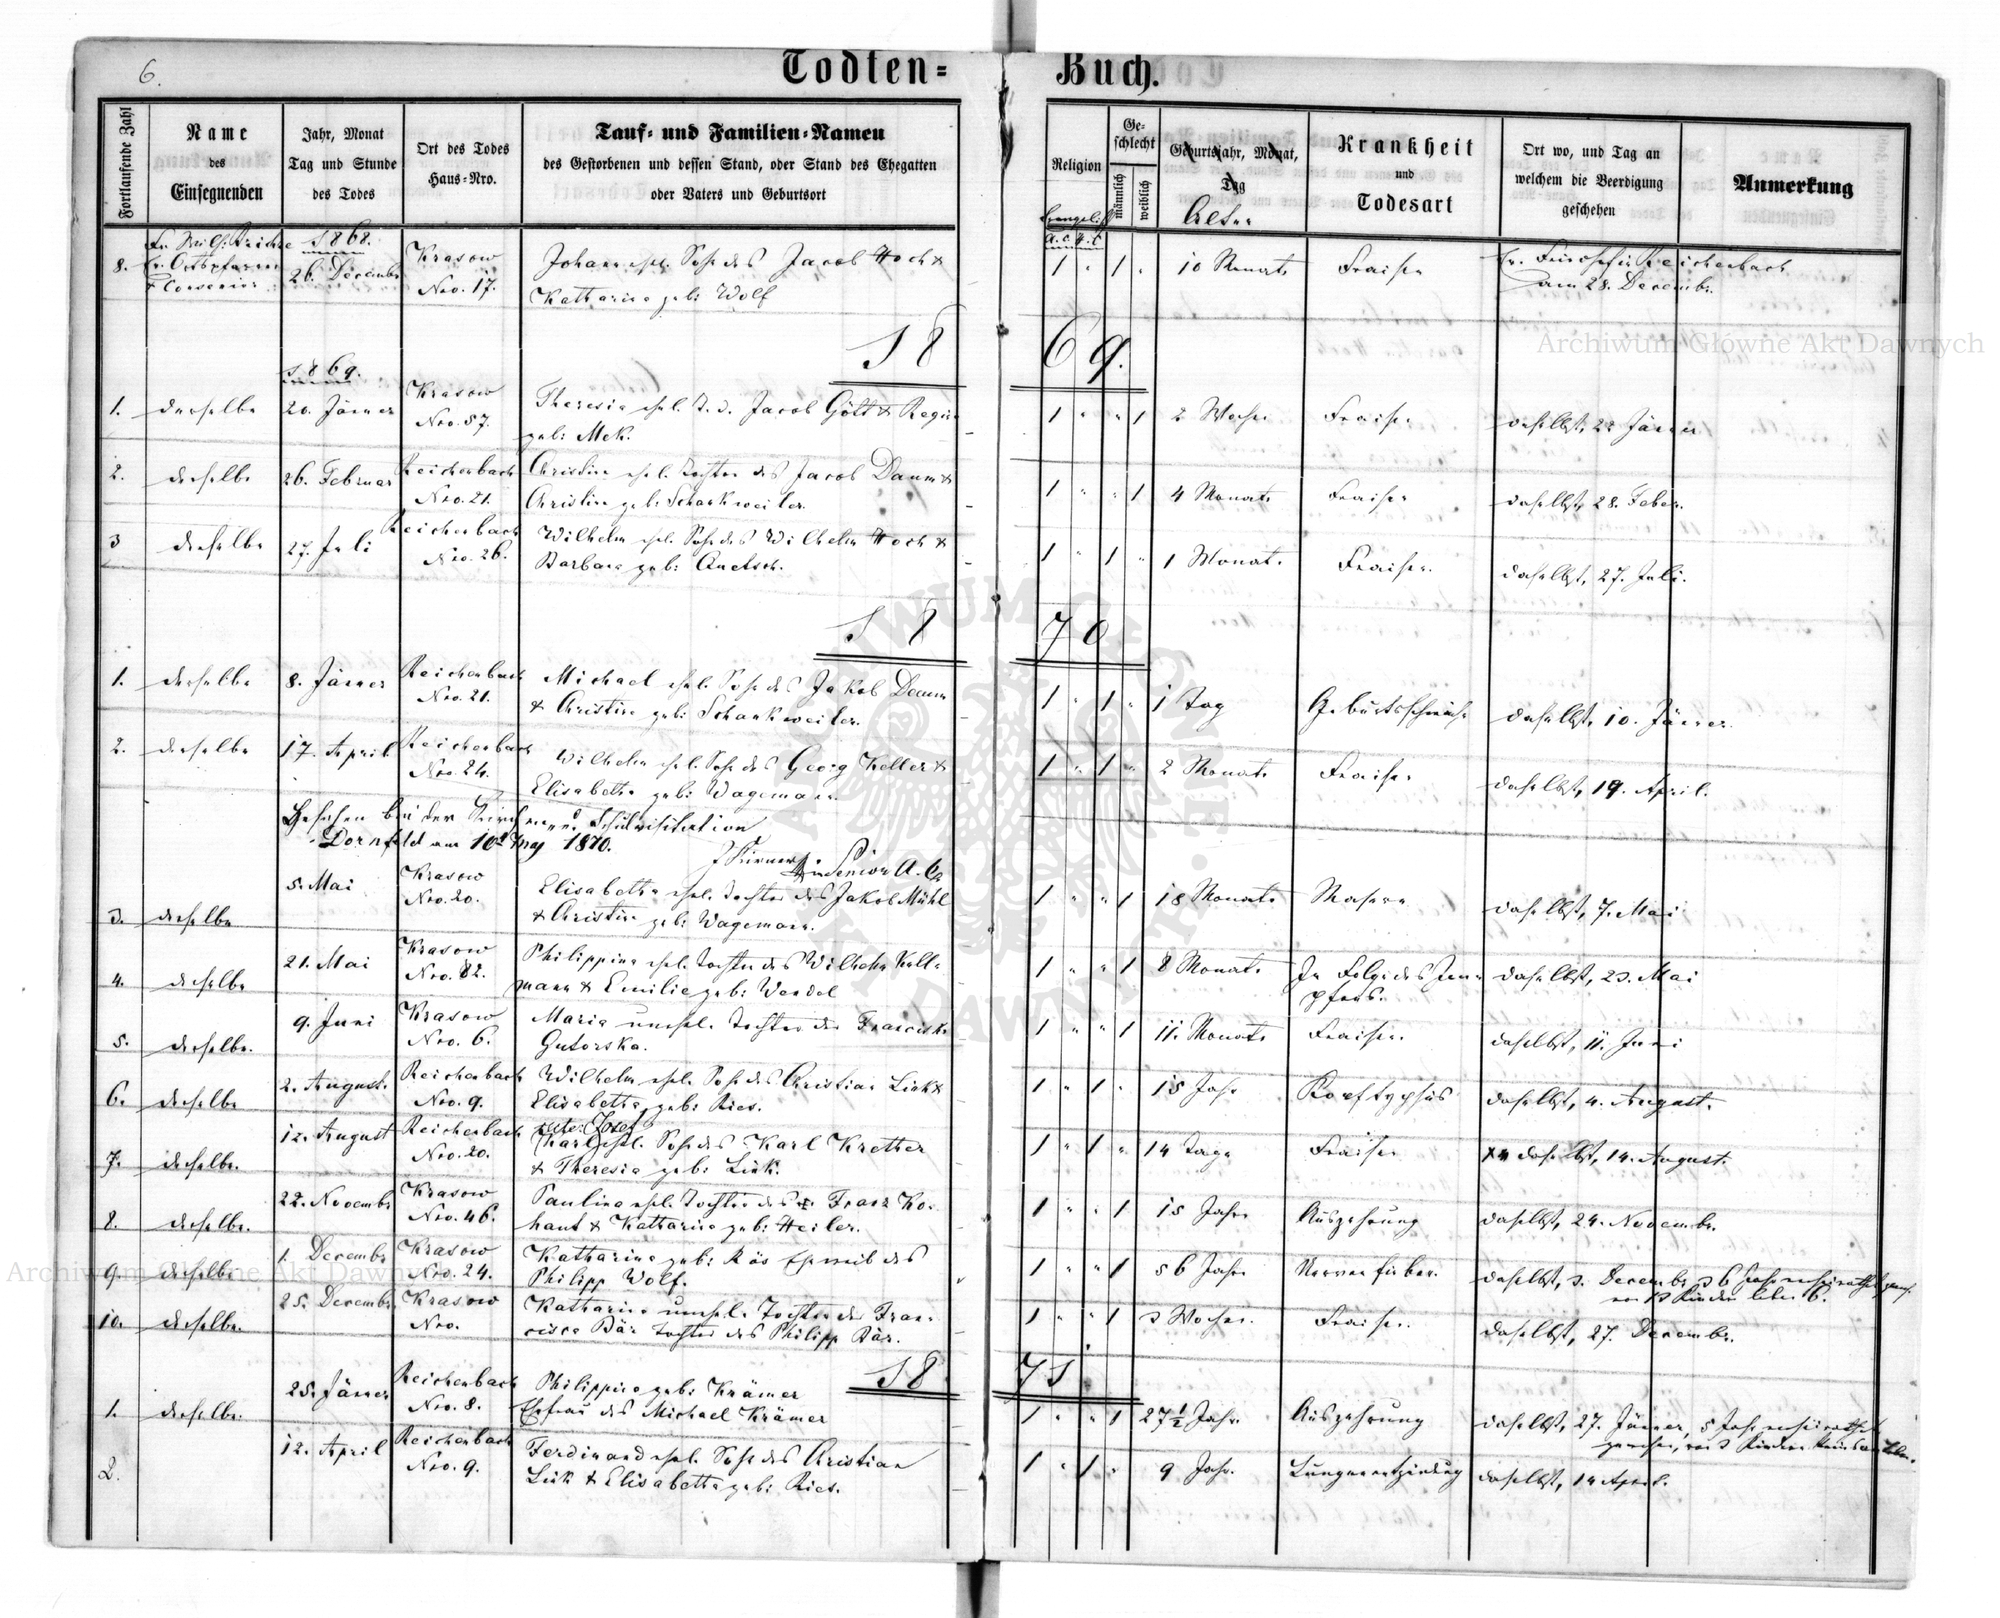 6.
Todten= Buch.
Fortlaufende Zahl
Name des Einsegnenden
Jahr, Monat Tag und Stunde des Todes
Ort des Todes Haus=Nro.
Tauf= und Familien=Namen
des Gestorbenen und dessen Stand, oder Stand des Ehegatten
oder Vaters und Geburtsort
Religion
Geschlecht
männlich
weiblich
Geburtsjahr, Monat, Tag
Alter
Krankheit und Todesart
Ort wo, und Tag an welchem die Beerdigung geschehen
Anmerkung
Evangelisch
A. C. H. C.
1868.
8. 26. December Krasow Nro. 17. Johann ehel. Sohn des Jacob Hoch &
Katharina geb: Wolf
1 " 1 " 10 Monate Fraisen Reichenbach
am 28. Decembr.
1869.
1869.
1. derselbe 20. Jänner Krasow Nro. 57. Theresia ehel. T. d. Jacob Gött & Regina
geb: Mek.
1 " " 1 2 Wochen Fraisen daselbst, 22 Jänner
2. derselbe 26. Februar Reichenbach Nro. 21. Christine ehel. Tochter des Jacob Daum &
Christine geb: Schankweiler.
1 " " 1 4 Monate Fraisen daselbst, 28. Feber.
3 derselbe 27. Juli Reichenbach Nro. 26. Wilhelm ehel. Sohn des Wilhelm Hoch &
Barbara geb: Quetsch.
1 " 1 " 1 Monat. Fraisen. daselbst, 27. Juli.
1870
1. derselbe 8. Jänner Reichenbach Nro. 21. Michael ehel. Sohn des Jakob Daum
& Christine geb: Schankweiler.
1 " 1 " 1 Tag Geburtsschwäche daselbst, 10. Jänner
2. derselbe 17. April Reichenbach Nro. 24. Wilhelm ehel. Sohn des Georg Keller &
Elisabetha geb: Wagemann.
1 " 1 " 2 Monate Fraisen daselbst, 19. April.
Gesehen bei der Kirchen und Schulvisitation
Dornfeld am 10 May 1870.
Senior A. C.
3. derselbe 5. Mai Krasow Nro. 20. Elisabetha ehel. Tochter des Jakob Mühl
& Christine geb: Wagemann.
1 " " 1 18 Monate Masern daselbst, 7. Mai
4. derselbe 21. Mai Krasow Nro. 82. Philippine ehel. Tochter des Wilhelm Kalt=
mann & Emilie geb: Wendel
1 " " 1 8 Monate In Folge des Im=
pfens. daselbst, 23. Mai
5. derselbe. 9. Juni Krasow Nro. 6. Maria unehel. Tochter der Franciska
Gutorska.
1 " " 1 11. Monate Fraisen. daselbst, 11. Juni
6. derselbe 2. August. Reichenbach Nro. 9. Wilhelm ehel. Sohn des Christian Link &
Elisabetha geb: Ries.
1 " 1 " 15 Jahre Kopftyphus daselbst, 4. August.
7. derselbe. 12. August Reichenbach Nro. 20. Karl ehel. Sohn des Karl Kretter
& Theresia geb: Link.
1 " 1 " 14 Tage Fraisen daselbst, 14. August.
8. derselbe. 22. Novembr Krasow Nro. 46. Paulina ehel. Tochter des Franz Ko=
haut & Katharina geb: Heiler.
1 " " 1 15 Jahre Auszehrung daselbst, 24. Novembr.
9 derselbe 1. Decembr Krasow Nro. 24. Katharina geb: Rös Eheweib des
Philipp Wolf.
1 " " 1 56 Jahre Nervenfieber. daselbst, 3. Decembr
von 13 Kinder leben 6.
10. derselbe. 25. Decembr Krasow Nro. Katharina unehel. Tochter der Fran=
cisca Bär Tochter des Philipp Bär.
1 " " 1 3 Wochen. Fraisen. daselbst, 27. Decembr.
1871
1. derselbe. 25. Jänner Reichenbach Nro. 8. Philippina geb: Krämer
Ehefrau des Michael Krämer
1 " " 1 27 1/2 Jahre Auszehrung daselbst, 27. Jänner, 5 Jahre verheirathet
gewesen, von 3 Kinder
2. 12. April Reichenbach Nro. 9. Ferdinand ehel. Sohn des Christian
Link & Elisabetha geb: Ries.
1 " 1 " 9 Jahre. Lungenentzündung daselbst, 14 April.
Archiwum Główne Akt Dawnych
Archiwum Główne Akt Dawnych
ARCHIWUM GŁÓWNE AKT DAWNYCH